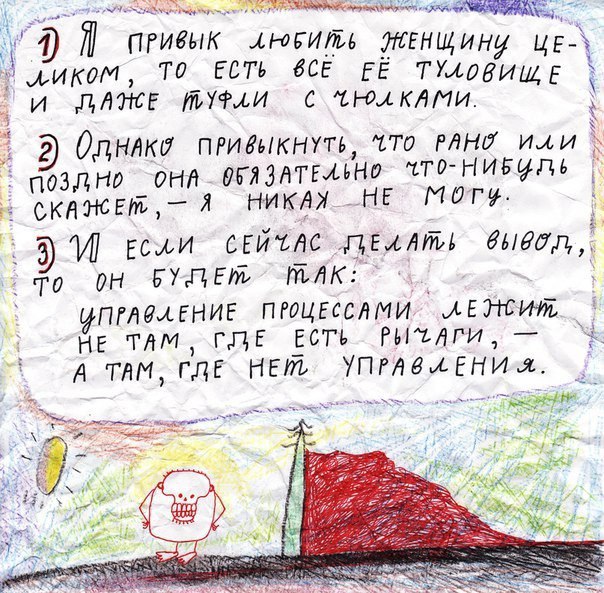 1) Я ПРИВЫК ЛЮБИТЬ ЖЕНЩИНУ ЦЕ-
ЛИКОМ, ТО ЕСТЬ ВСЁ ЕЁ ТУЛОВИЩЕ
И ДАЖЕ ТУФЛИ С ЧЮЛКАМИ.
2) ОДНАКО ПРИВЫКНУТЬ, ЧТО РАНО ИЛИ
ПОЗДНО ОНА ОБЯЗАТЕЛЬНО ЧТО-НИБУДЬ
СКАЖЕТ, – Я НИКАК НЕ МОГУ.
3) И ЕСЛИ СЕЙЧАС ДЕЛАТЬ ВЫВОД,
ТО ОН БУДЕТ ТАК:
УПРАВЛЕНИЕ ПРОЦЕССАМИ ЛЕЖИТ
НЕ ТАМ, ГДЕ ЕСТЬ РЫЧАГИ, –
А ТАМ, ГДЕ НЕТ УПРАВЛЕНИЯ.